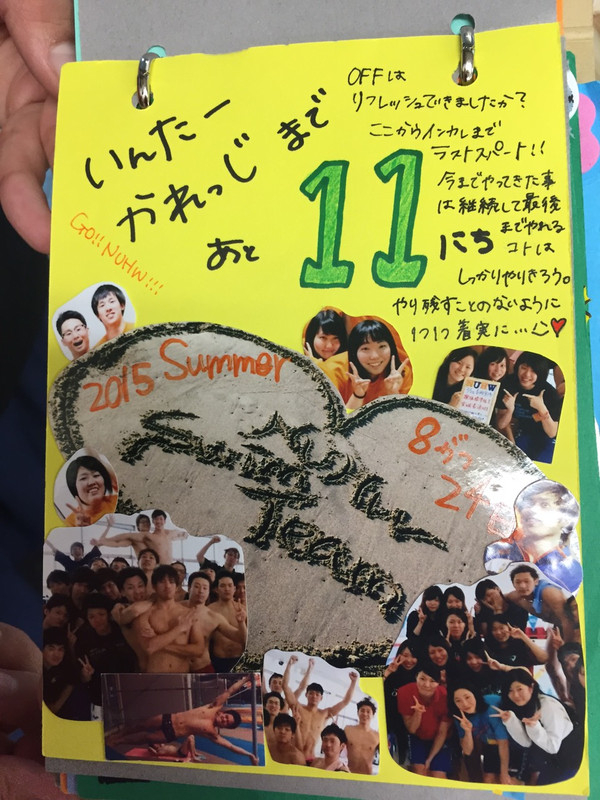 いんたー
かれっじ まで
あと 11 にち
GO!! NUHW!!!
OFFは
リフレッシュできましたか?
ここからインカレまで
ラストスパート!!
今までやってきた事
は継続して最後
までやれる
コトは
しっかりやりきろう。
やり残すことのないように
1つ1つ着実に…
2015 Summer
NUHW
Swim
Team
8がつ